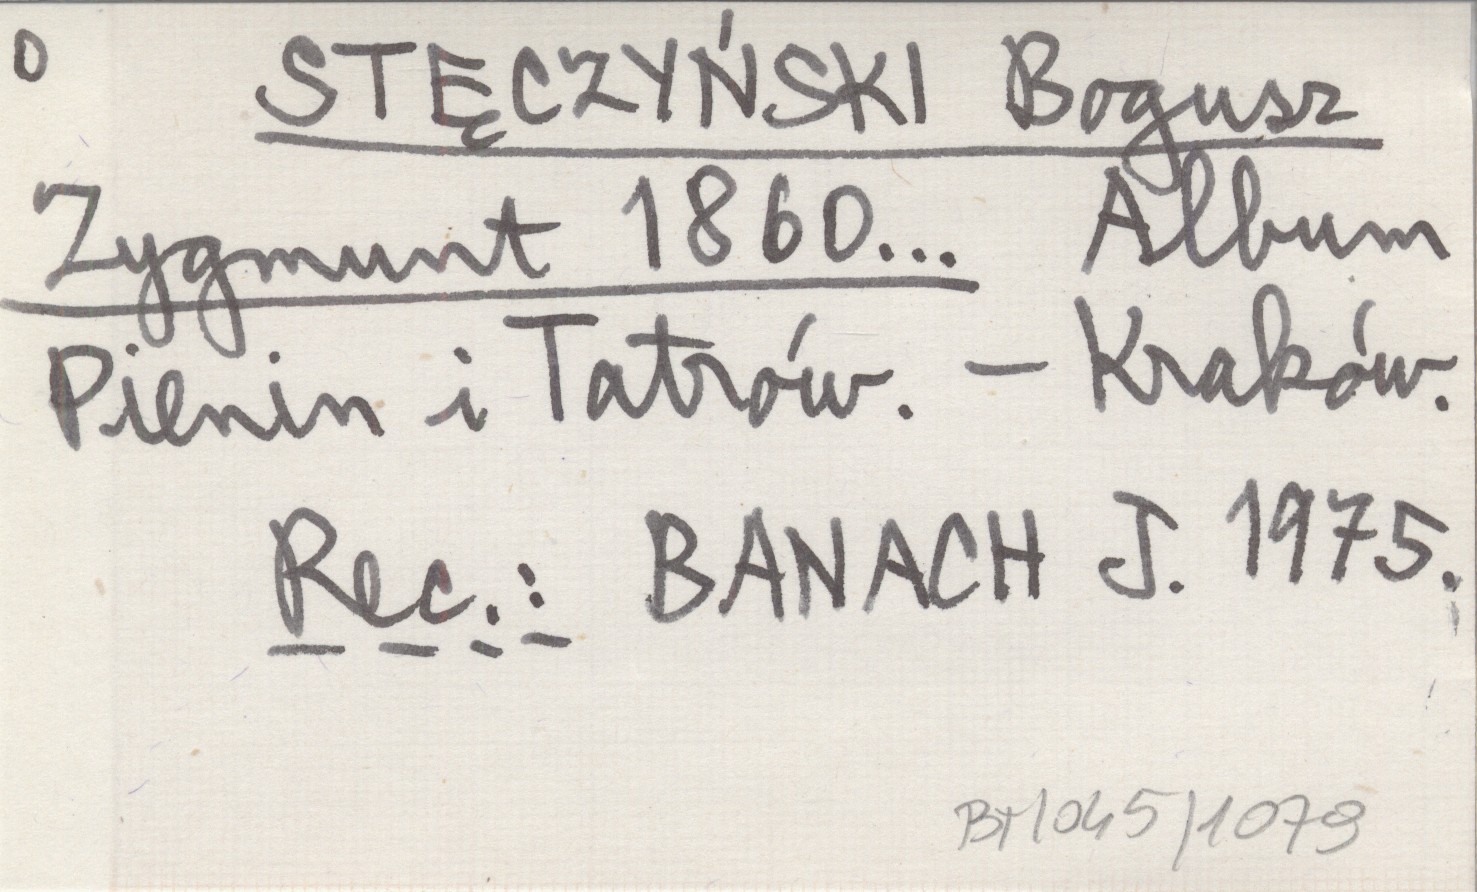 0 STĘCZYŃSKI Bogusz
Zygmunt 1860... Album
Pienin i Tatrów. — Kraków.
Rec.: BANACH J. 1975.
BT/045/1079